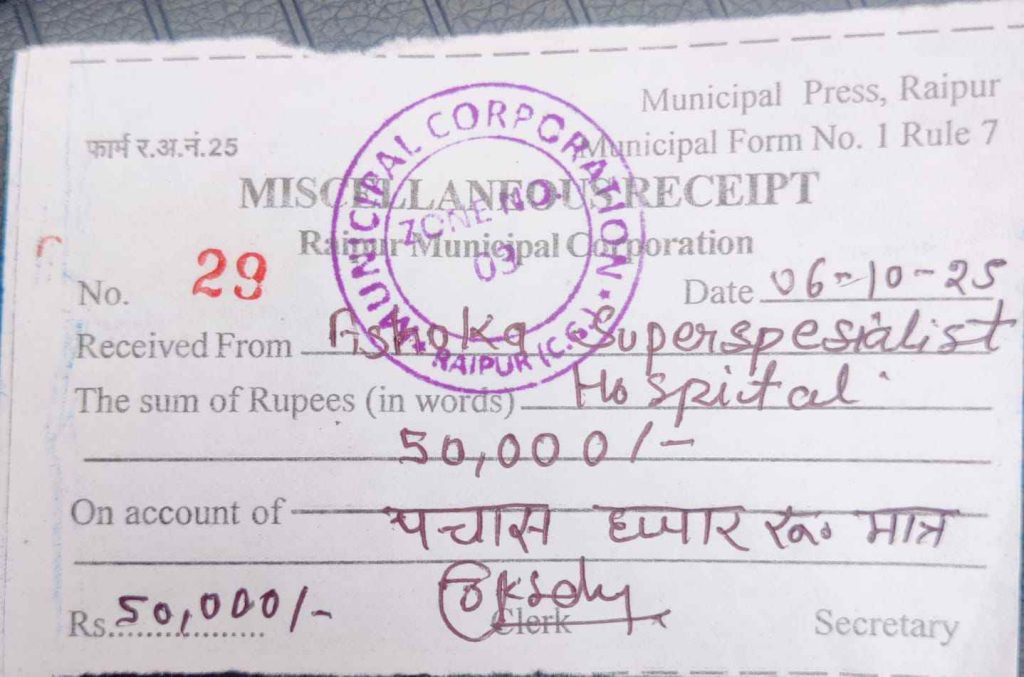 Municipal Press, Raipur
फार्म र.अ.नं.25
Municipal Form No. 1 Rule 7
MISCELLANEOUS RECEIPT
Raipur Municipal Corporation
MUNICIPAL CORPORATION * RAIPUR (C.G.) *
ZONE NO.
03
No. 29
Date 06-10-25
Received From Ashoka Superspesialist
The sum of Rupees (in words) Hospital
50,000/-
On account of पचास हजार रू. मात्र
Rs. 50,000/-
Clerk
Secretary